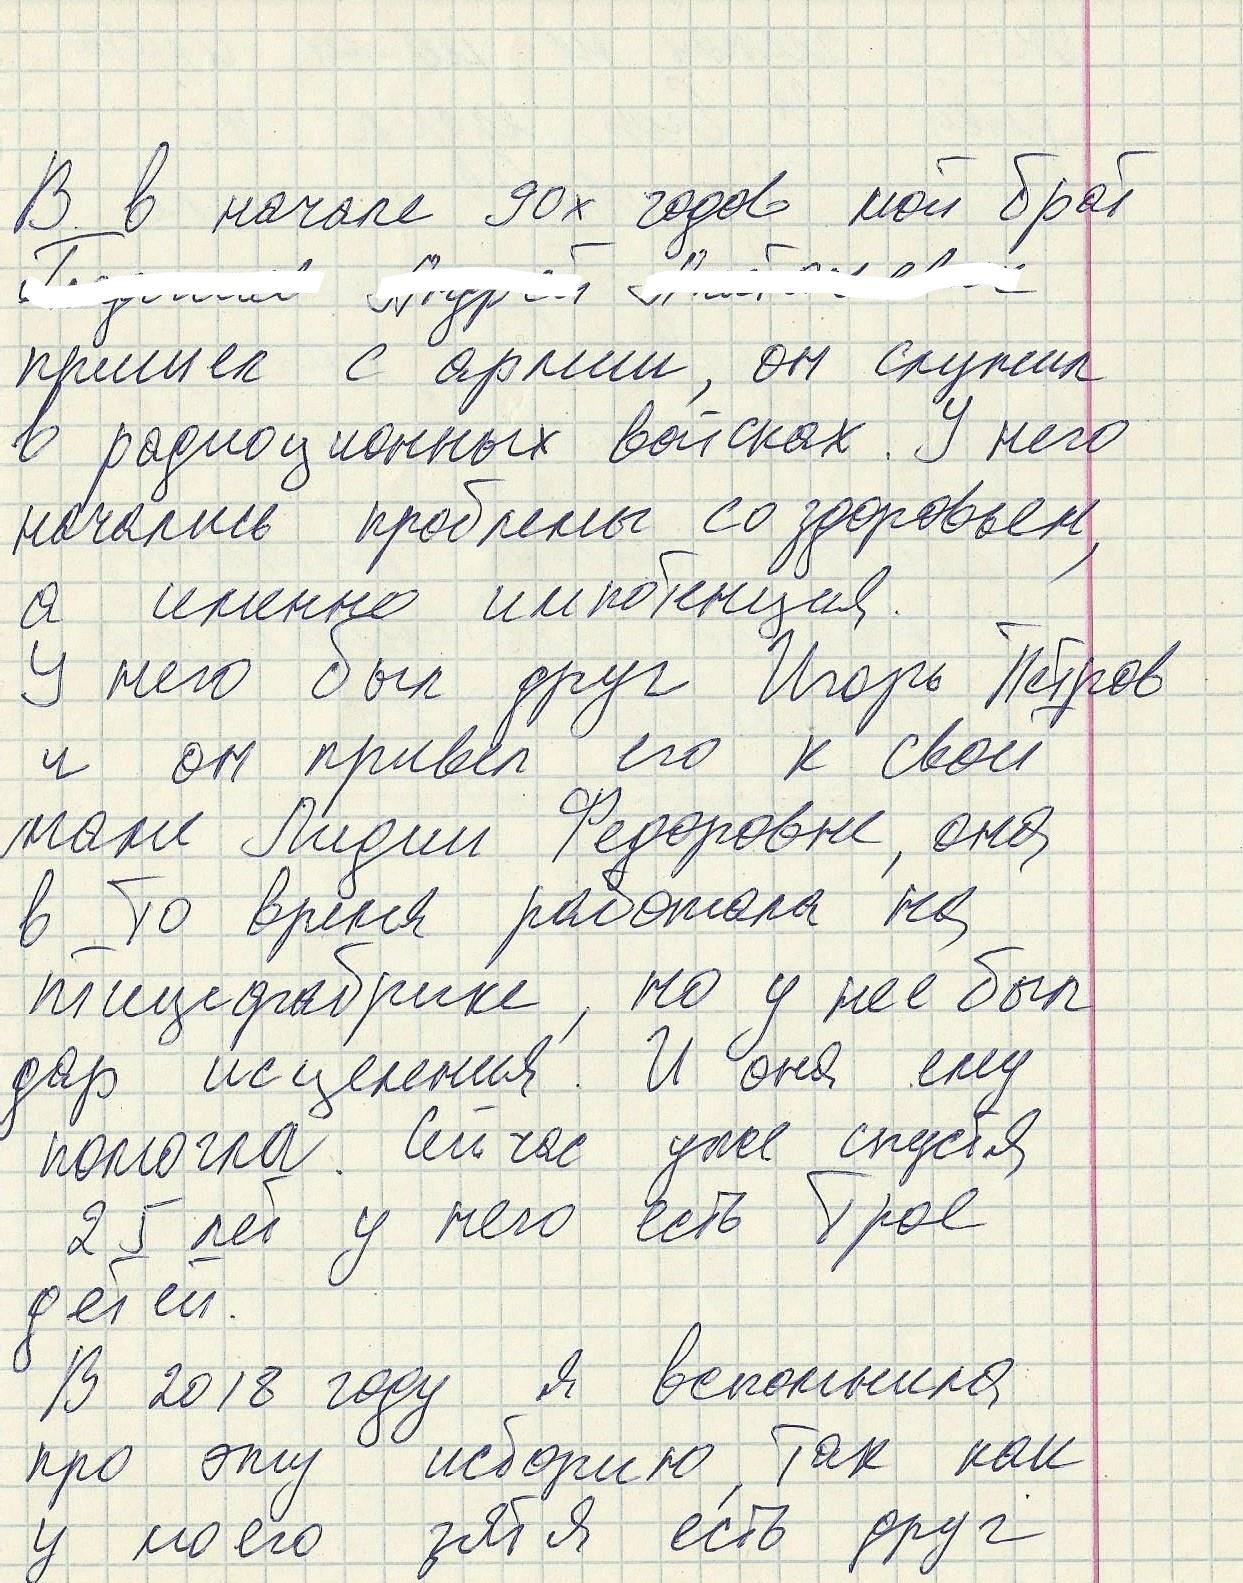 В в начале 90х годов мой брат
пришел с армии, он служил
в радиоционных войсках. У него
начались проблемы со здоровьем,
а именно импотенция.
У него был друг Игорь Петров
и он привел его к свой
маме Лидии Федоровне, она
в то время работала на
птицефабрике, но у нее был
дар исцеления. И она ему
помогла. Сейчас уже спустя
25 лет у него есть трое
детей.
В 2018 году я вспомнила
про эту историю, так как
у моего зятя есть друг